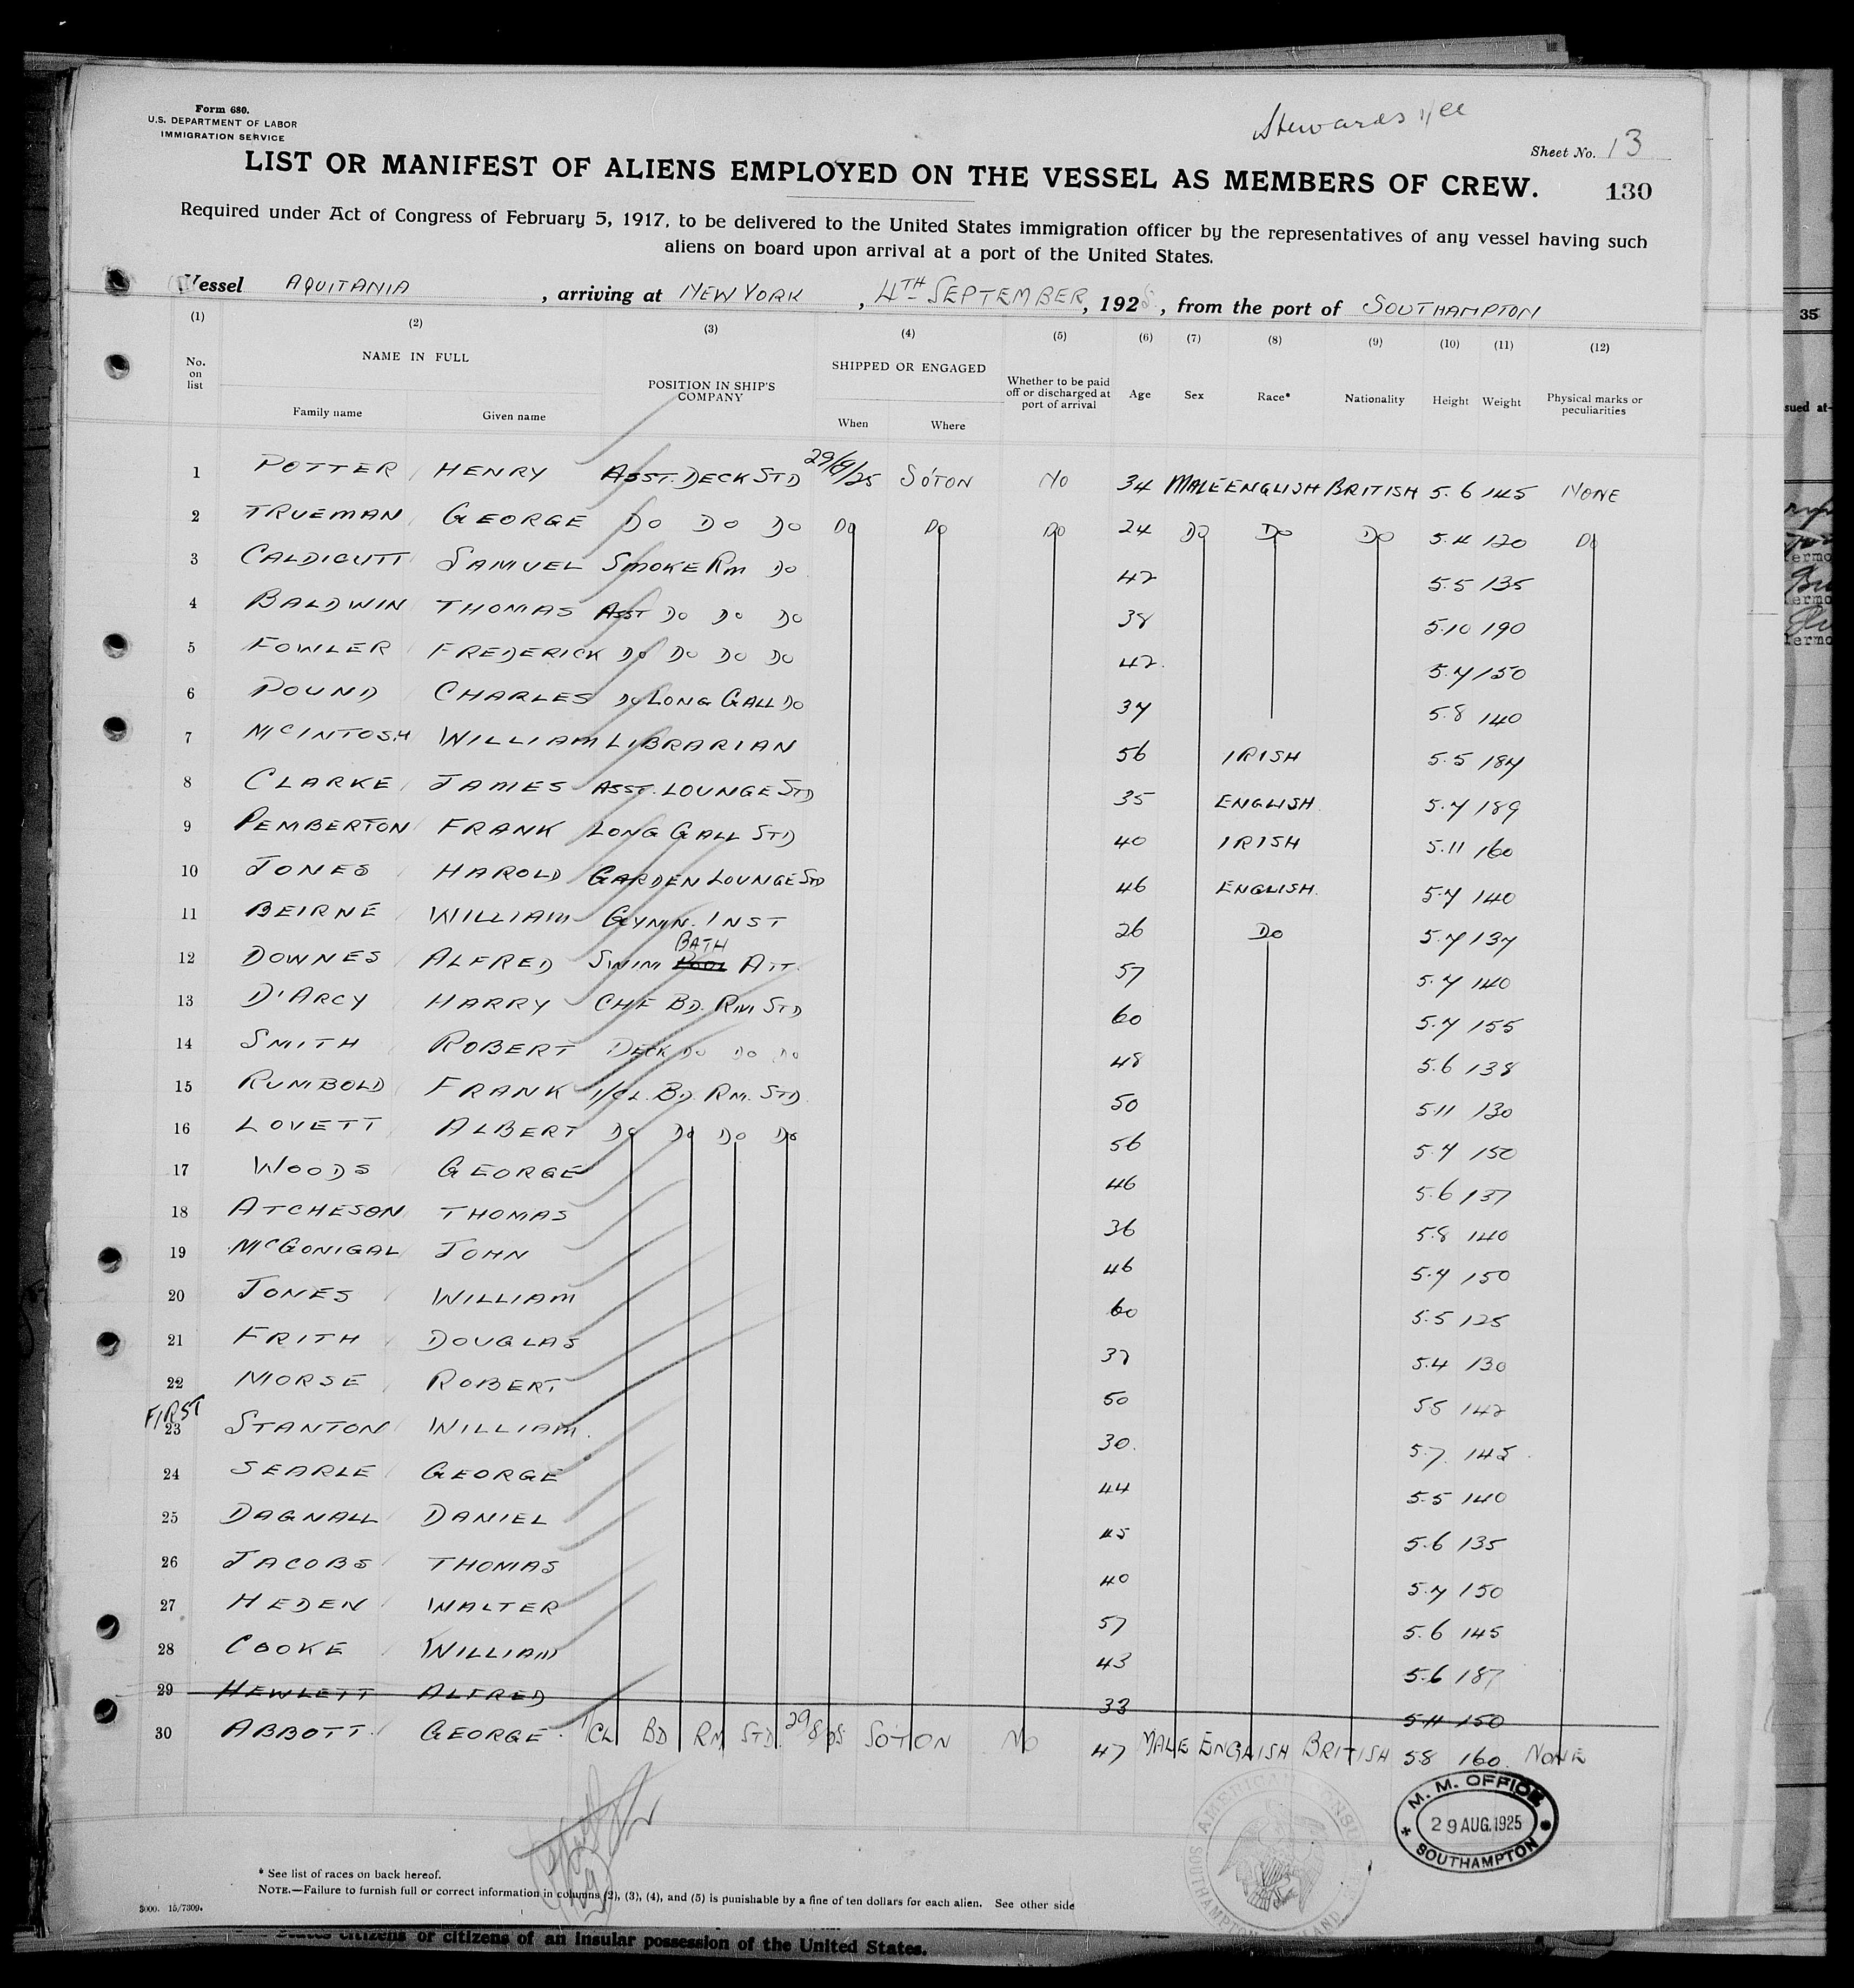 Form 680.
U.S. DEPARTMENT OF LABOR
IMMIGRATION SERVICE
Stewards
Sheet No. 13
LIST OR MANIFEST OF ALIENS EMPLOYED ON THE VESSEL AS MEMBERS OF CREW.
130
Required under Act of Congress of February 5, 1917, to be delivered to the United States immigration officer by the representatives of any vessel having such
aliens on board upon arrival at a port of the United States.
Vessel AQUITANIA, arriving at NEW YORK, 4TH SEPTEMBER, 1925, from the port of SOUTHAMPTON
(1) (2) (3) (4) (5) (6) (7) (8) (9) (10) (11) (12)
No. on list NAME IN FULL Family name Given name POSITION IN SHIP'S COMPANY SHIPPED OR ENGAGED When Where Whether to be paid off or discharged at port of arrival Age Sex Race* Nationality Height Weight Physical marks or peculiarities
1 POTTER HENRY ASST. DECK STD 29/8/25 SO'TON NO 34 MALE ENGLISH BRITISH 5.6 145 NONE
2 TRUEMAN GEORGE DO DO DO DO DO DO 24 DO DO DO 5.4 120 DO
3 CALDICUTT SAMUEL SMOKE RM DO 42 5.5 135
4 BALDWIN THOMAS ASST DO DO DO 38 5.10 190
5 FOWLER FREDERICK DO DO DO DO 42. 5.7 150
6 POUND CHARLES DO LONG GALL DO 37 5.8 140
7 McINTOSH WILLIAM LIBRARIAN 56 IRISH 5.5 187
8 CLARKE JAMES ASST. LOUNGE STD 35 ENGLISH. 5.7 189
9 PEMBERTON FRANK LONG GALL STD 40 IRISH 5.11 160
10 JONES HAROLD GARDEN LOUNGE STD 46 ENGLISH. 5.7 140
11 BEIRNE WILLIAM GYMN. INST 26 DO 5.7 137
12 DOWNES ALFRED SWIM BATH ATT. 57 5.7 140
13 D'ARCY HARRY CHF BD. RM STD 60 5.7 155
14 SMITH ROBERT DECK DO DO DO 48 5.6 138
15 RUMBOLD FRANK 1/CL. BD. RM. STD. 50 5.11 130
16 LOVETT ALBERT DO DO DO DO 56 5.7 150
17 WOODS GEORGE 46 5.6 137
18 ATCHESON THOMAS 36 5.8 140
19 McGONIGAL JOHN 46 5.7 150
20 JONES WILLIAM 60 5.5 125
21 FRITH DOUGLAS 37 5.4 130
22 MORSE ROBERT 50 5.5 142
FIRST
23 STANTON WILLIAM. 30. 5.7. 145.
24 SEARLE GEORGE 44 5.5 140
25 DAGNALL DANIEL 45 5.6 135
26 JACOBS THOMAS 40 5.7 150
27 HEDEN WALTER 57 5.6 145
28 COOKE WILLIAM 43 5.6 187
29 HEWLETT ALFRED 33 5.11 150
30 ABBOTT. GEORGE. 1/CL BD RM STD. 29/8/25 SO'TON NO 47 MALE ENGLISH BRITISH 5.8 160. NONE
M. M. OFFICE
29 AUG. 1925
SOUTHAMPTON
AMERICAN CONSULATE
SOUTHAMPTON ENGLAND
* See list of races on back hereof.
NOTE.—Failure to furnish full or correct information in columns (2), (3), (4), and (5) is punishable by a fine of ten dollars for each alien. See other side
3000. 15/7309.
States citizens or citizens of an insular possession of the United States.
35
sued at-